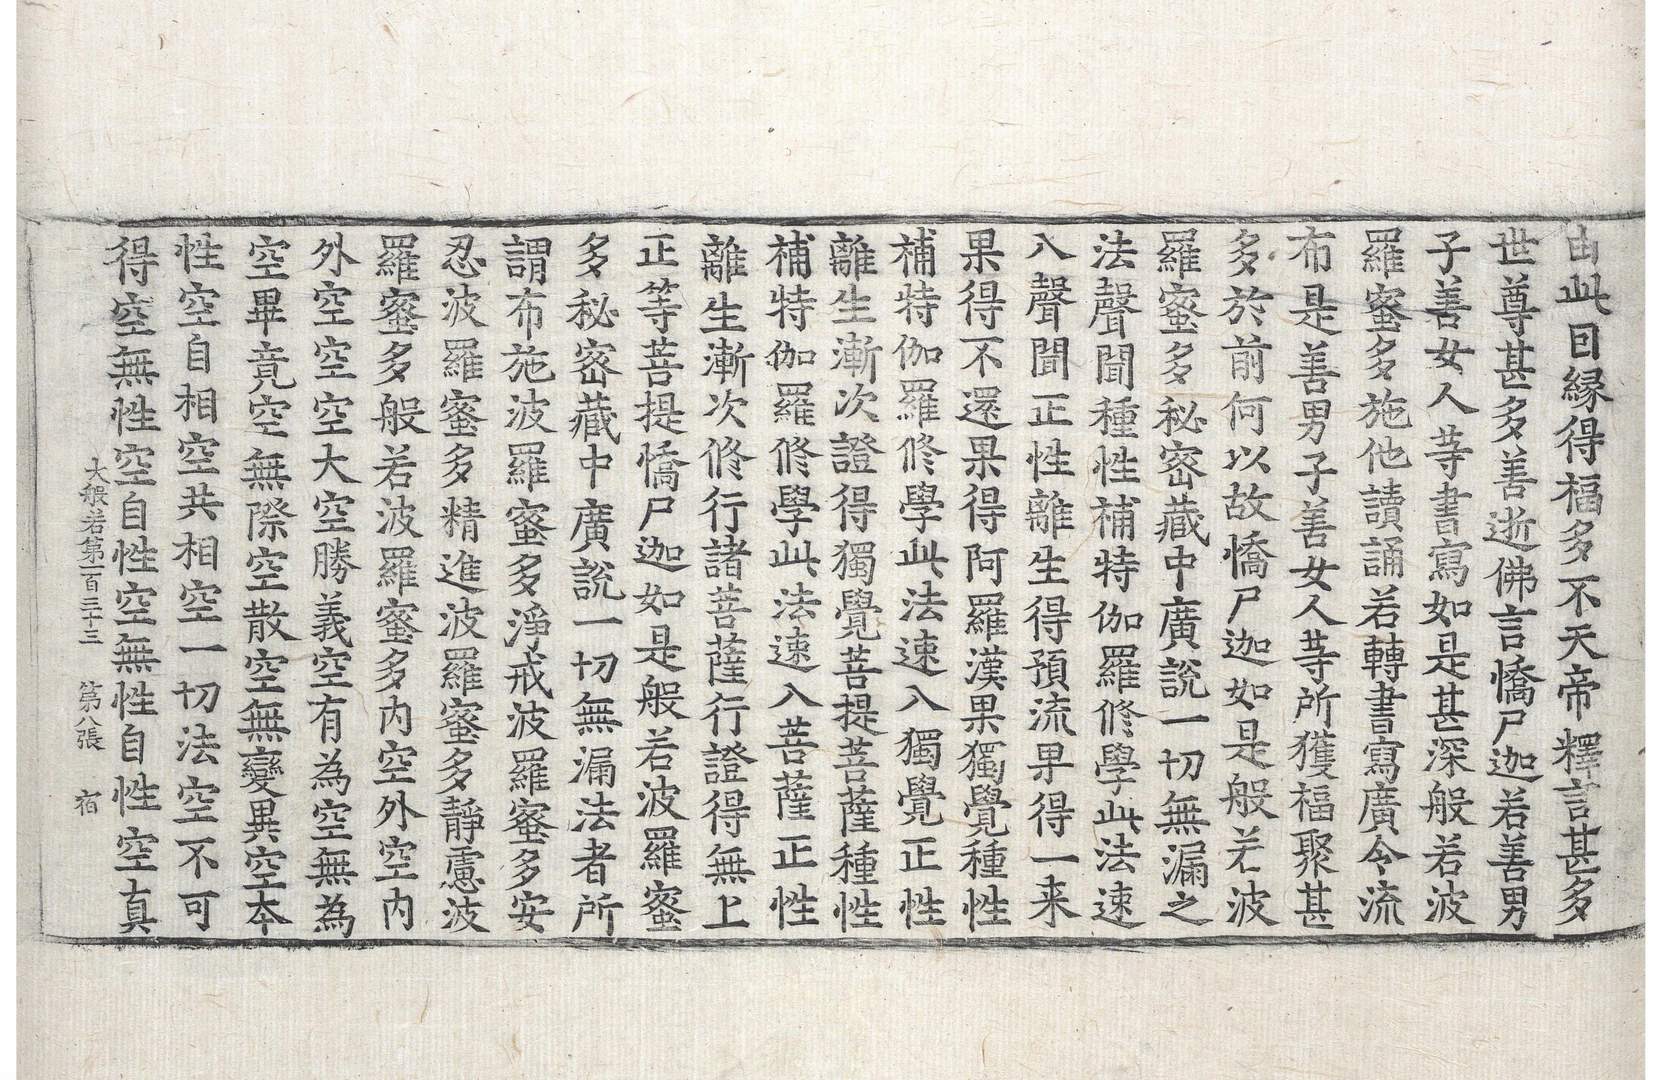 由此因緣得福多不天帝釋言甚多
世尊甚多善逝佛言憍尸迦若善男
子善女人等書寫如是甚深般若波
羅蜜多施他讀誦若轉書寫廣令流
布是善男子善女人等所獲福聚甚
多於前何以故憍尸迦如是般若波
羅蜜多秘密藏中廣說一切無漏之
法聲聞種性補特伽羅修學此法速
入聲聞正性離生得預流果得一来
果得不還果得阿羅漢果獨覺種性
補特伽羅修學此法速入獨覺正性
離生漸次證得獨覺菩提菩薩種性
補特伽羅修學此法速入菩薩正性
離生漸次修行諸菩薩行證得無上
正等菩提憍尸迦如是般若波羅蜜
多秘密藏中廣說一切無漏法者所
謂布施波羅蜜多淨戒波羅蜜多安
忍波羅蜜多精進波羅蜜多靜慮波
羅蜜多般若波羅蜜多內空外空內
外空空空大空勝義空有為空無為
空畢竟空無際空散空無變異空本
性空自相空共相空一切法空不可
得空無性空自性空無性自性空真
大般若第一百三十三 第八張 宿